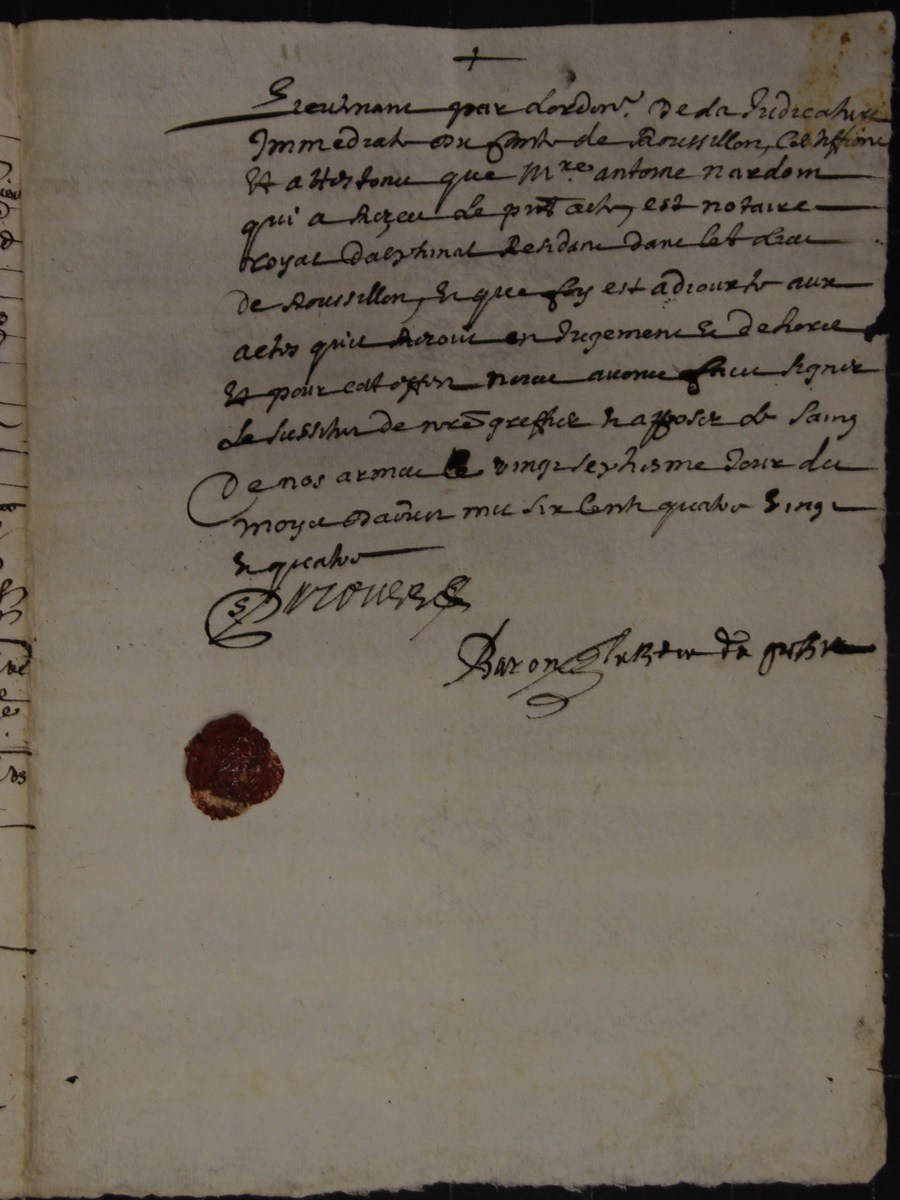 +
Lieutenant par L'ordon.re de la Judicature
Immediate du Conté de Roussillon, Certiffions
Et attestons que M.re antoine nardoin
qui a Receu le prnt acte, est notaire
royal dalphinal Residant dans led. Lieu
de Roussillon, et que foy est adjoutée aux
actes qu'il Reçoit en Jugement et dehors
Et pour cet effet nous avons faict signer
Le substitut de notre greffier et apposer Le Saing
De nos armes Le vingt septiesme Jour du
moys d'avril mil six Cents quatre Vingt
et quatre
Baron